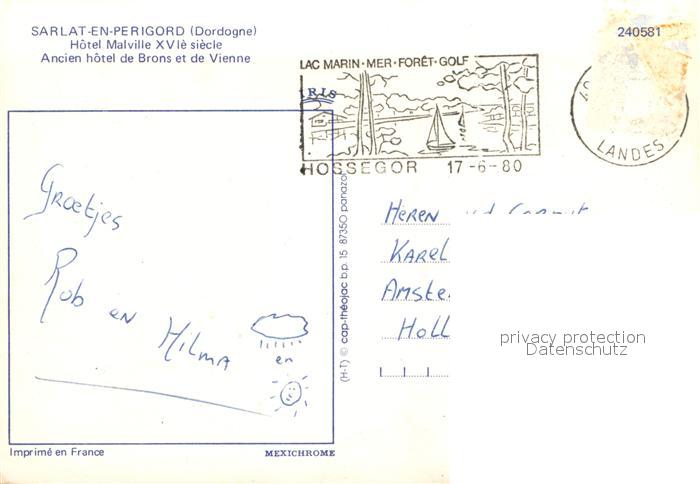 SARLAT-EN-PERIGORD (Dordogne)
Hôtel Malville XVIè siècle
Ancien hôtel de Brons et de Vienne
240581
LAC MARIN-MER-FORÊT-GOLF
IRIS
HOSSEGOR 17-6-80
LANDES
Groetjes
Rob en Hilma
en
HEREN
KAREL
AMSTE
HOLL
(H-T) © cap-théojac b.p. 15 87350 panazol
privacy protection
Datenschutz
Imprimé en France
MEXICHROME